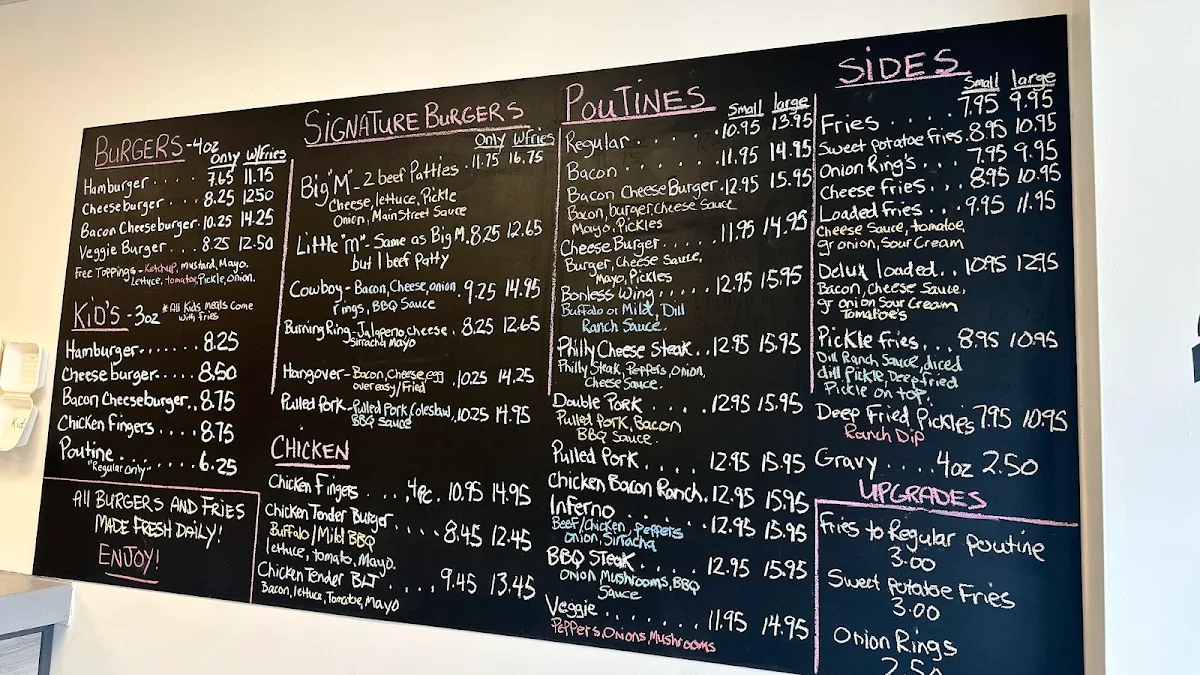 BURGERS-4oz
Only W/Fries
Hamburger..... 7.65 11.75
Cheeseburger... 8.25 1250
Bacon Cheeseburger. 10.25 14.25
Veggie Burger... 8.25 12.50
Free Toppings - Ketchup, mustard, Mayo.
Lettuce, tomato, Pickle, Onion.
KiD'S - 3oz *All Kids meals come
with fries
Hamburger....... 8.25
Cheese burger..... 8.50
Bacon Cheeseburger.. 8.75
Chicken Fingers .... 8.75
Poutine ........ 6.25
"Regular Only"
All BURGERS AND FRiES
MADE FRESH DAILY!
ENJOY!
SiGNATURE BURGERS
Only W/Fries
Big "M" - 2 beef Patties . 11.75 16.75
Cheese, lettuce, Pickle
Onion, MainStreet Sauce
Little "M" - Same as Big M. 8.25 12.65
but 1 beef Patty
Cowboy - Bacon, Cheese, onion . 9.25 14.95
rings, BBQ Sauce
Burning Ring - Jalapeno, cheese . 8.25 12.65
Sirracha Mayo
Hangover - Bacon, Cheese, egg 10.25 14.25
over easy/Fried
Pulled Pork - Pulled Pork, Coleslaw, 10.25 14.95
BBQ Sauce
CHiCKEN
Chicken Fingers .... 4pc. 10.95 14.95
Chicken Tender Burger..... 8.45 12.45
Buffalo/Mild BBQ
lettuce, tomato, Mayo.
Chicken Tender BLT ..... 9.45 13.45
Bacon, lettuce, Tomatoe, Mayo
POUTiNES
Small large
Regular.. . . 10.95 13.95
Bacon ...... 11.95 14.95
Bacon Cheese Burger. 12.95 15.95
Bacon, burger, Cheese Sauce
Mayo, Pickles
Cheese Burger..... 11.95 14.95
Burger, Cheese Sauce,
Mayo, Pickles
Bonless Wing.... 12.95 15.95
Buffalo or Mild, Dill
Ranch Sauce.
Philly Cheese Steak.. 12.95 15.95
Philly Steak, Peppers, Onion,
Cheese Sauce.
Double Pork .... 12.95 15.95
Pulled Pork, Bacon
BBQ Sauce.
Pulled Pork.... 12.95 15.95
Chicken Bacon Ranch. 12.95 15.95
Inferno ....... 12.95 15.95
Beef/Chicken, Peppers
Onion, Sirracha
BBQ Steak ..... 12.95 15.95
Onion Mushrooms, BBQ
Sauce
Veggie ....... 11.95 14.95
Peppers, Onions, Mushrooms
SiDES
Small large
Fries ..... 7.95 9.95
Sweet potatoe Fries. 8.95 10.95
Onion Ring's.... 7.95 9.95
Cheese fries... 8.95 10.95
Loaded fries... 9.95 11.95
Cheese Sauce, tomatoe,
gr onion, Sour Cream
Delux loaded.. 10.95 12.95
Bacon, Cheese Sauce,
gr onion Sour Cream
Tomatoe's
Pickle fries... 8.95 10.95
Dill Ranch Sauce, diced
dill Pickle, Deep fried
Pickle on top.
Deep Fried Pickles 7.95 10.95
Ranch Dip
Gravy .... 4oz 2.50
UPGRADES
Fries to Regular poutine
3.00
Sweet potatoe Fries
3.00
Onion Rings
2.50
Kid